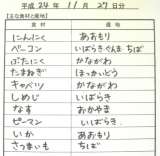 平成 24年 11月 27日分
【主な食材と産地】
食材 産地
にんにく あおもり
ベーコン いばらきぐんま ちば
ぶたにく かながわ
たまねぎ ほっかいどう
キャベツ かながわ
しめじ いばらき
なす おかやま
ピーマン いばらき
いか あおもり
さつまいも ちば